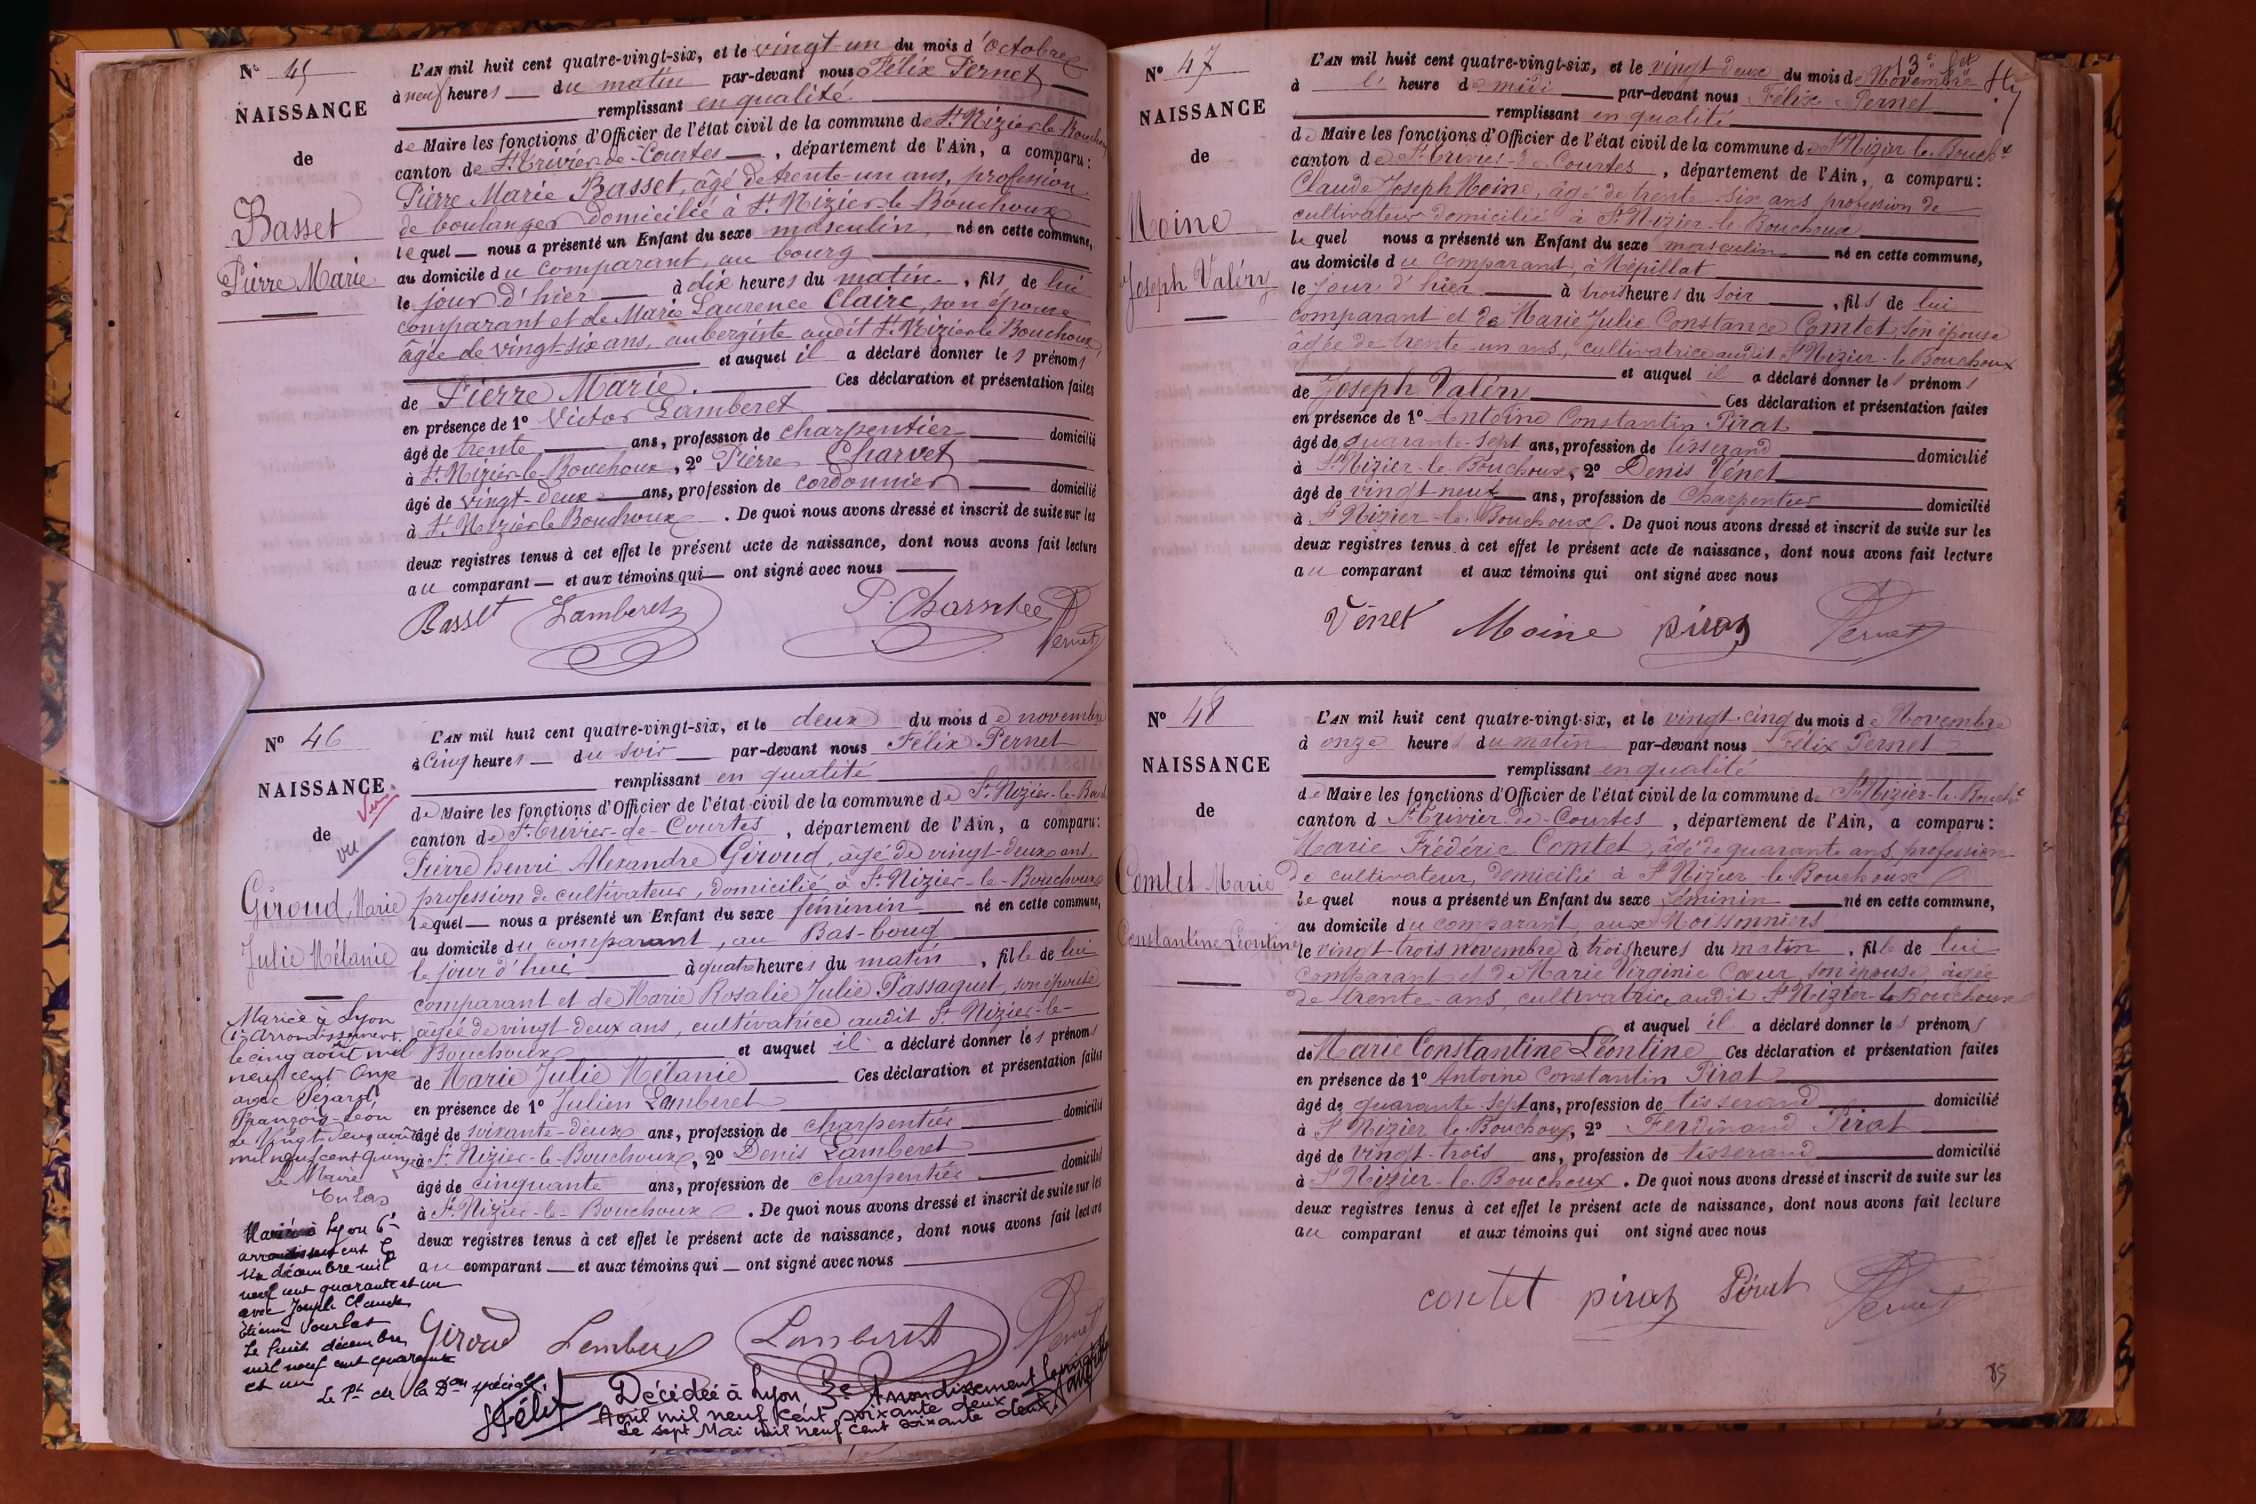 N° 45
NAISSANCE
de
Basset
Pierre Marie
L'AN mil huit cent quatre-vingt-six, et le vingt-un du mois d'Octobre
à neuf heures du matin par-devant nous Félix Pernet
remplissant en qualité
de Maire les fonctions d'Officier de l'état civil de la commune de St Nizier le Bouchoux
canton de St Trivier-de-Courtes, département de l'Ain, a comparu:
Pierre Marie Basset, âgé de trente-un ans, profession
de boulanger domicilié à St Nizier-le-Bouchoux
lequel nous a présenté un Enfant du sexe masculin, né en cette commune,
au domicile du comparant, au bourg
le jour d'hier à dix heures du matin, fils de lui
comparant et de Marie Laurence Claire, son épouse
âgée de vingt-six ans, aubergiste audit St Nizier le Bouchoux,
et auquel il a déclaré donner les prénoms
de Pierre Marie. Ces déclaration et présentation faites
en présence de 1° Victor Lamberet
âgé de trente ans, profession de charpentier domicilié
à St Nizier-le-Bouchoux, 2° Pierre Charvet
âgé de vingt-deux ans, profession de cordonnier domicilié
à St Nizier le Bouchoux. De quoi nous avons dressé et inscrit de suite sur les
deux registres tenus à cet effet le présent acte de naissance, dont nous avons fait lecture
au comparant et aux témoins qui ont signé avec nous
Basset Lamberet P. Pernet
N° 46
NAISSANCE
de
vu
Giroud, Marie
Julie Mélanie
L'AN mil huit cent quatre-vingt-six, et le deux du mois de novembre
à cinq heures du soir par-devant nous Félix Pernet
remplissant en qualité
de Maire les fonctions d'Officier de l'état civil de la commune de St Nizier-le-Bouch
canton de St Trivier-de-Courtes, département de l'Ain, a comparu:
Pierre henri Alexandre Giroud, âgé de vingt-deux ans,
profession de cultivateur, domicilié à St Nizier-le-Bouchoux
lequel nous a présenté un Enfant du sexe féminin né en cette commune,
au domicile du comparant, au Bas-boug
le jour d'hui à quatre heures du matin, fille de lui
comparant et de Marie Rosalie Julie Passaquet, son épouse
âgée de vingt-deux ans, cultivatrice audit St Nizier-le-
Bouchoux et auquel il a déclaré donner les prénoms
de Marie Julie Mélanie Ces déclaration et présentation faites
en présence de 1° Julien Lamberet
âgé de soixante-deux ans, profession de charpentier domicilié
à St Nizier-le-Bouchoux, 2° Denis Lamberet
âgé de cinquante ans, profession de charpentier domicilié
à St Nizier-le-Bouchoux. De quoi nous avons dressé et inscrit de suite sur les
deux registres tenus à cet effet le présent acte de naissance, dont nous avons fait lecture
au comparant et aux témoins qui ont signé avec nous
Giroud Lamberet Pernet
Mariée à Lyon
Arrondissement
le cinq août mil
neuf cent onze
avec
François-Léon
Le Vingt-deux
mil neuf cent
Le Maire
Mariée à Lyon 6e
arrondissement le
décembre mil
neuf cent quarante et un
avec Joseph Claude
Etienne
Le huit décembre
mil neuf cent quarante
et un
Décédée à Lyon 3e Arrondissement
Avril mil neuf cent soixante deux
Le sept Mai mil neuf cent soixante deux.
N° 47
NAISSANCE
de
Moine
Joseph Valéry
L'AN mil huit cent quatre-vingt-six, et le vingt-deux du mois de Novembre
à heure de midi par-devant nous Félix Pernet
remplissant en qualité
de Maire les fonctions d'Officier de l'état civil de la commune de St Nizier-le-Bouchx
canton de St Trivier-de-Courtes, département de l'Ain, a comparu:
Claude Joseph Moine, âgé de trente-six ans profession de
cultivateur domicilié à St Nizier-le-Bouchoux
lequel nous a présenté un Enfant du sexe masculin né en cette commune,
au domicile du comparant, à Népillat
le jour d'hier à trois heures du soir, fils de lui
comparant et de Marie Julie Constance Comtet, son épouse
âgée de trente-un ans, cultivatrice audit St Nizier-le-Bouchoux
et auquel il a déclaré donner les prénoms
de Joseph Valéry Ces déclaration et présentation faites
en présence de 1° Antoine Constantin Pirat
âgé de quarante-sept ans, profession de tisserand domicilié
à St Nizier-le-Bouchoux, 2° Denis Vénet
âgé de vingt-neuf ans, profession de charpentier domicilié
à St Nizier-le-Bouchoux. De quoi nous avons dressé et inscrit de suite sur les
deux registres tenus à cet effet le présent acte de naissance, dont nous avons fait lecture
au comparant et aux témoins qui ont signé avec nous
Vénet Moine pirat Pernet
N° 48
NAISSANCE
de
Comtet Marie
Constantine Léontine
L'AN mil huit cent quatre-vingt-six, et le vingt-cinq du mois de Novembre
à onze heures du matin par-devant nous Félix Pernet
remplissant en qualité
de Maire les fonctions d'Officier de l'état civil de la commune de St Nizier-le-Bouchx
canton d St Trivier-de-Courtes, département de l'Ain, a comparu:
Marie Frédéric Comtet, âgé de quarante ans, profession
de cultivateur, domicilié à St Nizier-le-Bouchoux
lequel nous a présenté un Enfant du sexe féminin né en cette commune,
au domicile du comparant, aux Moissonniers
le vingt-trois novembre à trois heures du matin, fille de lui
comparant et de Marie Virginie Cœur, son épouse, âgée
de trente ans, cultivatrice audit St Nizier-le-Bouchoux
et auquel il a déclaré donner les prénoms
de Marie Constantine Léontine Ces déclaration et présentation faites
en présence de 1° Antoine Constantin Pirat
âgé de quarante-sept ans, profession de tisserand domicilié
à St Nizier-le-Bouchoux, 2° Ferdinand Pirat
âgé de vingt-trois ans, profession de tisserand domicilié
à St Nizier-le-Bouchoux. De quoi nous avons dressé et inscrit de suite sur les
deux registres tenus à cet effet le présent acte de naissance, dont nous avons fait lecture
au comparant et aux témoins qui ont signé avec nous
contet pirat Pirat Pernet
85